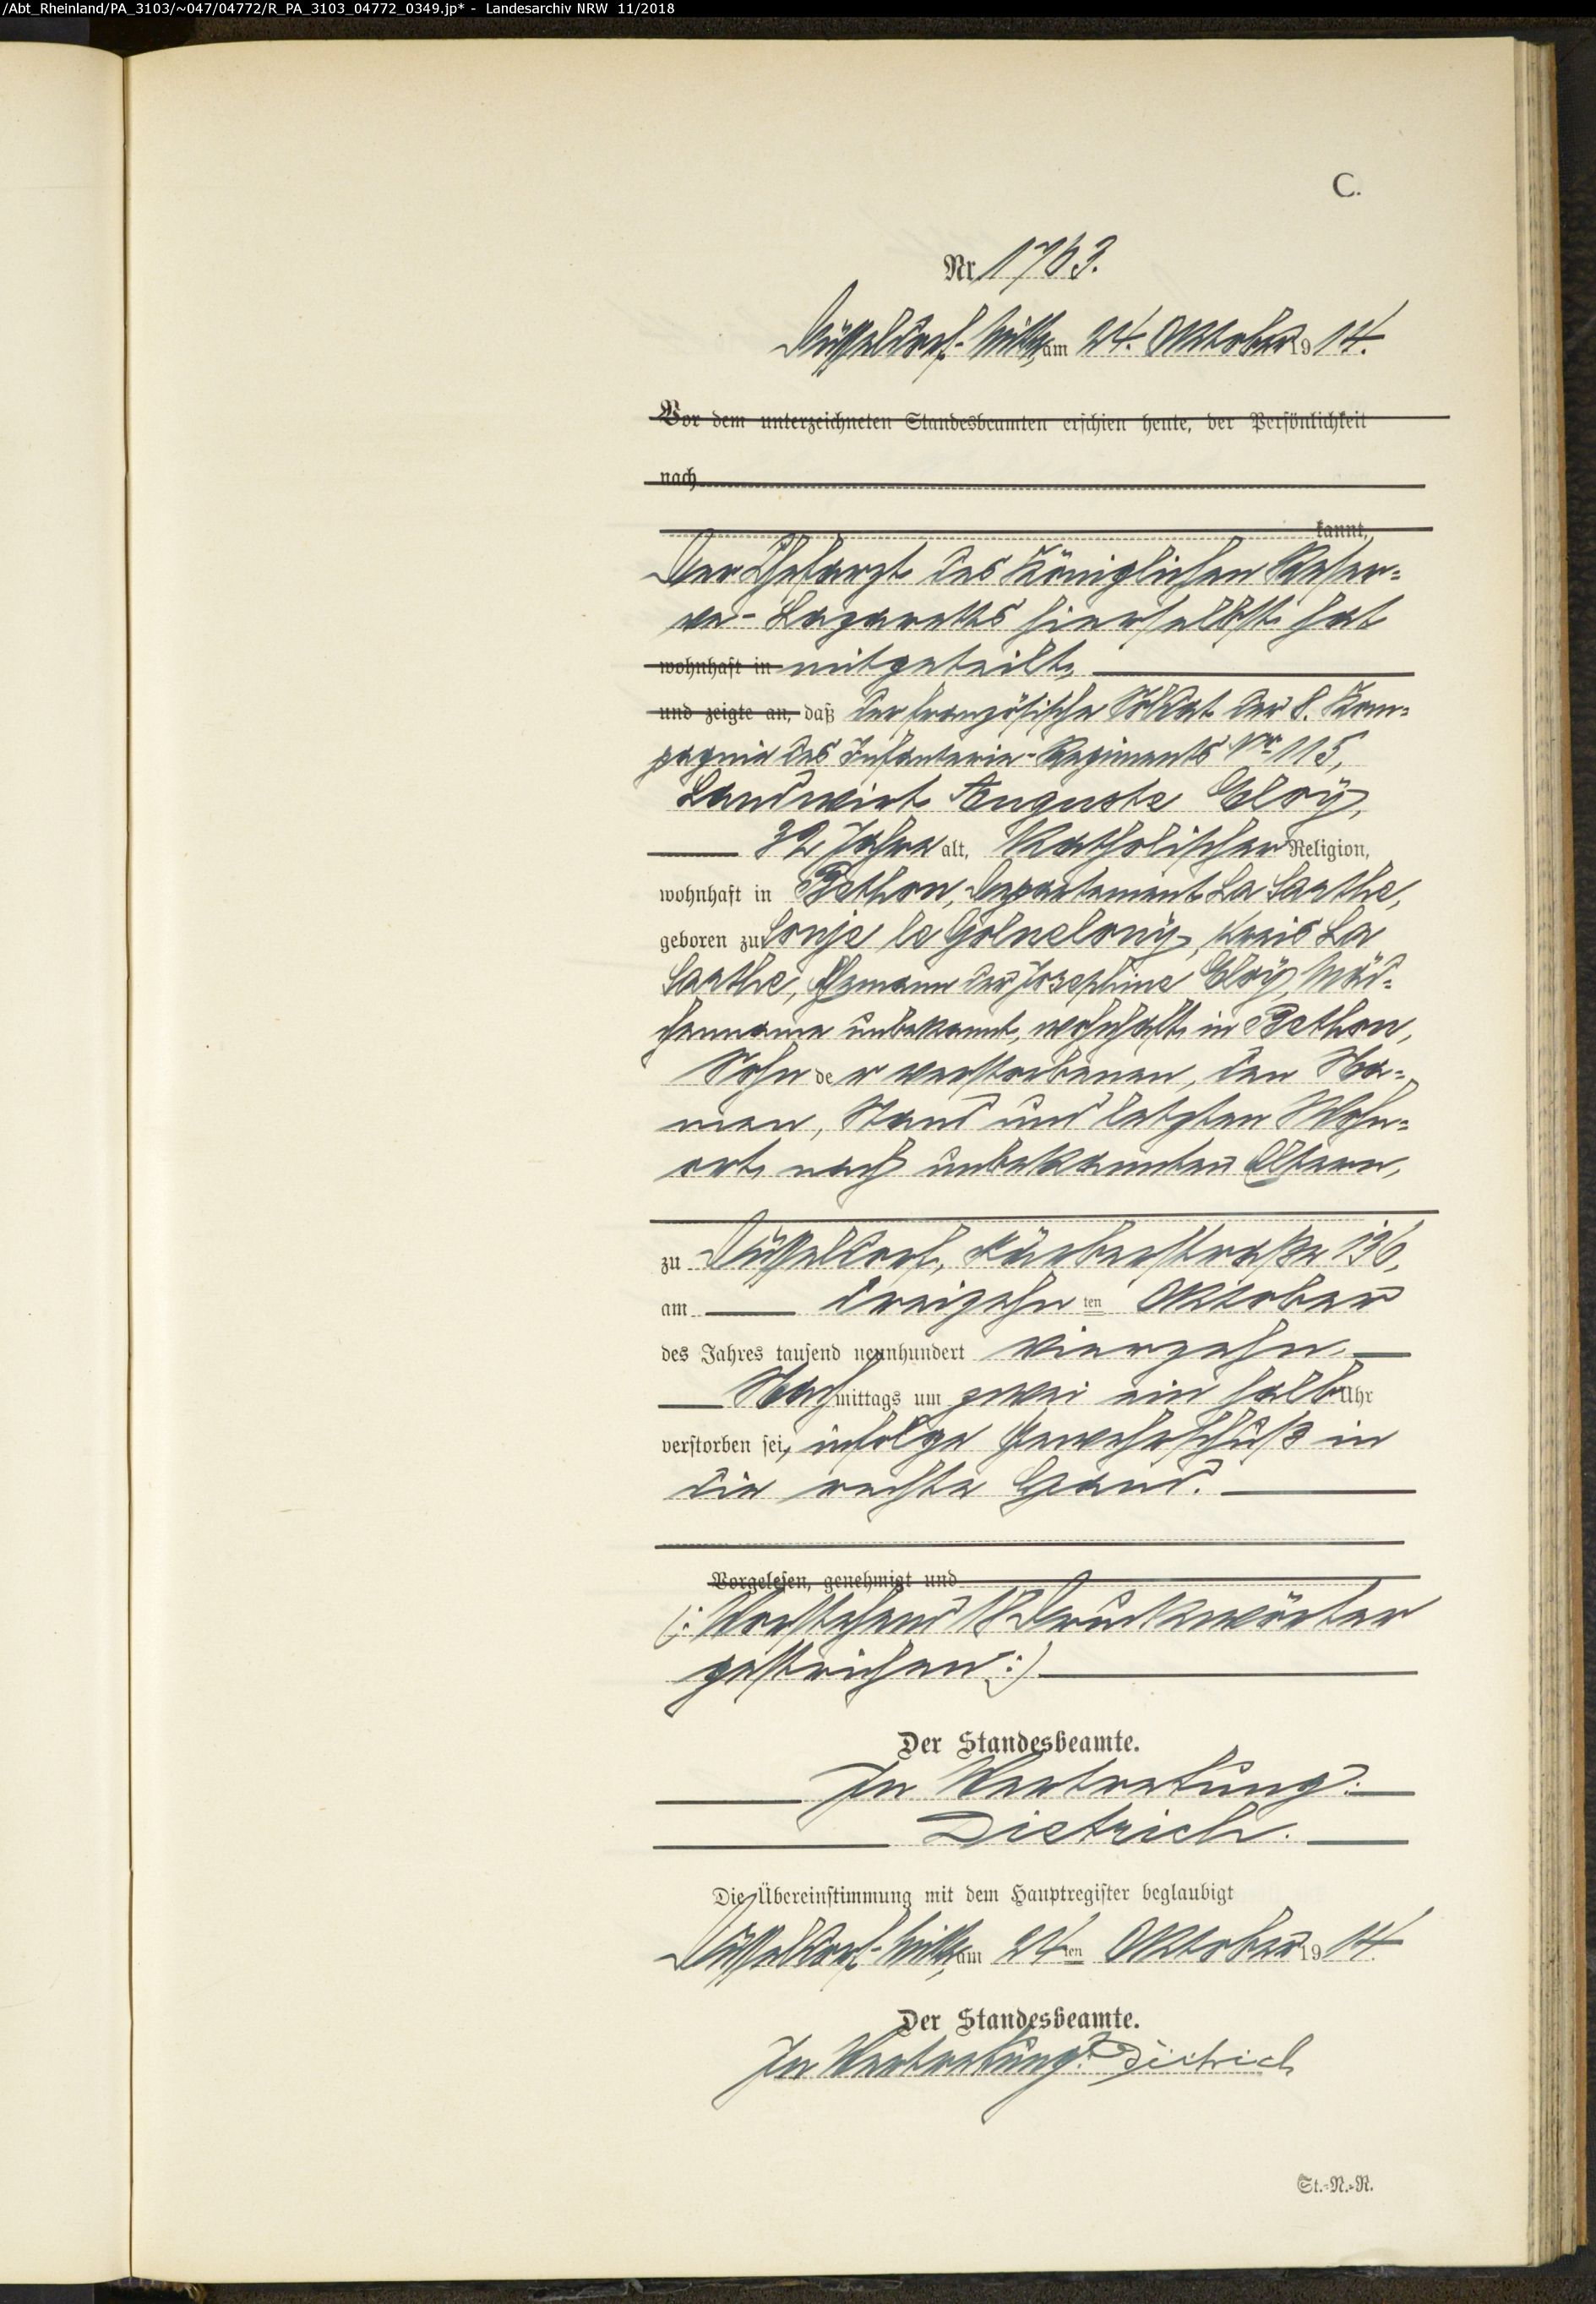 /Abt_Rheinland/PA_3103/~047/04772/R_PA_3103_04772_0349.jp* - Landesarchiv NRW 11/2018
C.
Nr. 1763.
Düsseldorf-Mitte, am 24. Oktober 1914.
Vor dem unterzeichneten Standesbeamten erschien heute, der Persönlichkeit
nach
kannt,
Der Chefarzt des Königlichen Reser-
ve-Lazaretts hierselbst hat
wohnhaft in mitgeteilt,
und zeigte an, daß der französische Soldat der 8. Kom-
pagnie des Infanterie-Regiments Nr 115,
Landwirt Auguste Eloÿ,
32 Jahre alt, Katholischer Religion,
wohnhaft in Bethon, Departement La Sarthe,
geboren zu le Kreis La
Sarthe, Ehemann der Josephine Eloÿ, Mäd-
chenname unbekannt, wohnhaft in Bethon,
Sohn der verstorbenen, den Na-
men, Stand und letzten Wohn-
ort nach unbekannten Eltern,
zu Düsseldorf, Färberstraße 136,
am dreizehn ten Oktober
des Jahres tausend neunhundert vierzehn,
Nachmittags um zwei ein halb Uhr
verstorben sei, infolge Gewehrschuß in
die rechte Hand.
Vorgelesen, genehmigt und
(: Vorstehend 18 Druckwörter
gestrichen :)
Der Standesbeamte.
In Vertretung:
Dietrich.
Die Übereinstimmung mit dem Hauptregister beglaubigt
Düsseldorf-Mitte, am 24ten Oktober 1914.
Der Standesbeamte.
In Vertretung: Dietrich
St.-N.-R.